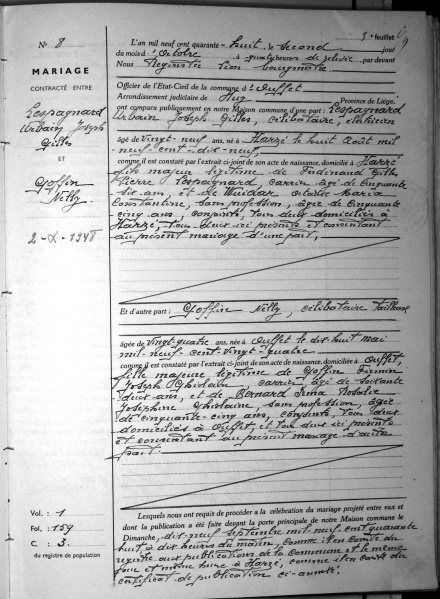 8e feuillet
N° 8
MARIAGE
CONTRACTÉ ENTRE
Lespagnard
Urbain Joseph
Gilles
ET
Goffin
Nelly
2-X-1948
Vol. : 1
Fol. : 159
C : 3.
du registre de population
L'an mil neuf cent quarante-huit, le second jour
du mois d'Octobre à quatre heures de relevée par devant
Nous
Officier de l'Etat-Civil de la commune d'Ouffet
Arrondissement judiciaire de Huy Province de Liège,
ont comparu publiquement en notre Maison commune d'une part : Lespagnard
Urbain Joseph Gilles, célibataire,
âgé de Vingt-neuf ans, né à Harzé le huit Août mil
neuf-cent-dix-neuf
comme il est constaté par l'extrait ci-joint de son acte de naissance, domicilié à Harzé
fils majeur légitime de Ferdinand Gilles
Pierre Lespagnard, carrier, âgé de cinquante
dix ans, et de Octavie Maria
Constantine, sans profession, âgée de cinquante
cinq ans, conjoints, tous deux domiciliés à
Harzé, tous deux ici présents et consentant
au présent mariage d'une part,
Et d'autre part : Goffin Nelly, célibataire tailleuse
âgée de Vingt-quatre ans, née à Ouffet le dix huit mai
mil-neuf-cent-vingt-quatre
comme il est constaté par l'extrait ci-joint de son acte de naissance, domiciliée à Ouffet
fille majeure légitime de Goffin Firmin
Joseph Ghislain, carrier, âgé de soixante
deux ans, et de Bernard Irma Rosalie
Joséphine Ghislaine, sans profession, âgée
de cinquante-cinq ans, conjoints, tous deux
domiciliés à Ouffet, et tous deux ici présents
et consentant au présent mariage d'autre
part.
Lesquels nous ont requis de procéder à la célébration du mariage projeté entre eux et
dont la publication a été faite devant la porte principale de notre Maison commune le
Dimanche, dix-neuf septembre mil-neuf-cent quarante
huit, à dix heures du matin, comme il en conste du
registre aux publications de la commune et le même
jour et même heure à Harzé, comme il en conste du
certificat de publication ci-annexé.